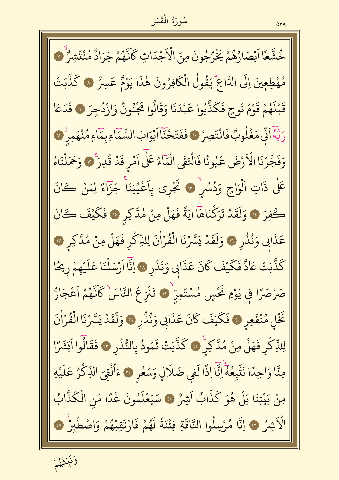 ٥٢٨ سُورَةُ الْقَمَرِ
خُشَّعًا اَبْصَارُهُمْ يَخْرُجُونَ مِنَ الْاَجْدَاثِ كَاَنَّهُمْ جَرَادٌ مُنْتَشِرٌۙ
مُهْطِعِينَ اِلَى الدَّاعِۜ يَقُولُ الْكَافِرُونَ هٰذَا يَوْمٌ عَسِرٌ كَذَّبَتْ
قَبْلَهُمْ قَوْمُ نُوحٍ فَكَذَّبُوا عَبْدَنَا وَقَالُوا مَجْنُونٌ وَازْدُجِرَ فَدَعَا
رَبَّهُٓ اَنِّي مَغْلُوبٌ فَانْتَصِرْ فَفَتَحْنَٓا اَبْوَابَ السَّمَٓاءِ بِمَٓاءٍ مُنْهَمِرٍۘ
وَفَجَّرْنَا الْاَرْضَ عُيُونًا فَالْتَقَى الْمَٓاءُ عَلٰٓى اَمْرٍ قَدْ قُدِرَۚ وَحَمَلْنَاهُ
عَلٰى ذَاتِ اَلْوَاحٍ وَدُسُرٍۙ تَجْرِي بِاَعْيُنِنَاۚ جَزَٓاءً لِمَنْ كَانَ
كُفِرَ وَلَقَدْ تَرَكْنَاهَٓا اٰيَةً فَهَلْ مِنْ مُدَّكِرٍ فَكَيْفَ كَانَ
عَذَابِي وَنُذُرِ وَلَقَدْ يَسَّرْنَا الْقُرْاٰنَ لِلذِّكْرِ فَهَلْ مِنْ مُدَّكِرٍ
كَذَّبَتْ عَادٌ فَكَيْفَ كَانَ عَذَابِي وَنُذُرِ اِنَّٓا اَرْسَلْنَا عَلَيْهِمْ رِيحًا
صَرْصَرًا فِي يَوْمِ نَحْسٍ مُسْتَمِرٍّۙ تَنْزِعُ النَّاسَۙ كَاَنَّهُمْ اَعْجَازُ
نَخْلٍ مُنْقَعِرٍ فَكَيْفَ كَانَ عَذَابِي وَنُذُرِ وَلَقَدْ يَسَّرْنَا الْقُرْاٰنَ
لِلذِّكْرِ فَهَلْ مِنْ مُدَّكِرٍ۟ كَذَّبَتْ ثَمُودُ بِالنُّذُرِ فَقَالُٓوا اَبَشَرًا
مِنَّا وَاحِدًا نَتَّبِعُهُٓۙ اِنَّٓا اِذًا لَفِي ضَلَالٍ وَسُعُرٍ ءَاُلْقِيَ الذِّكْرُ عَلَيْهِ
مِنْ بَيْنِنَا بَلْ هُوَ كَذَّابٌ اَشِرٌ سَيَعْلَمُونَ غَدًا مَنِ الْكَذَّابُ
الْاَشِرُ اِنَّا مُرْسِلُوا النَّاقَةِ فِتْنَةً لَهُمْ فَارْتَقِبْهُمْ وَاصْطَبِرْۘ
وَنَبِّئْهُمْ